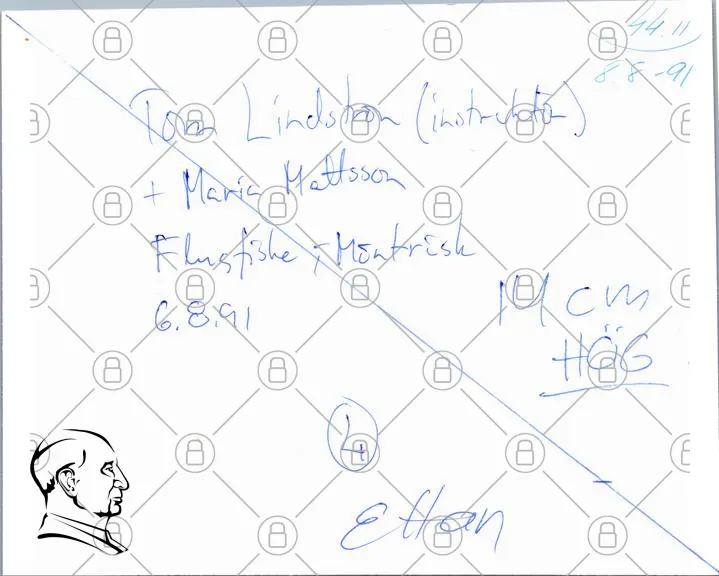 44.11
8.8-91
Tom Lindström (instruktör)
+ Maria Mattsson
Flugfiske i Möntrisk
6.8.91
14 cm
HÖG
4
Ettan